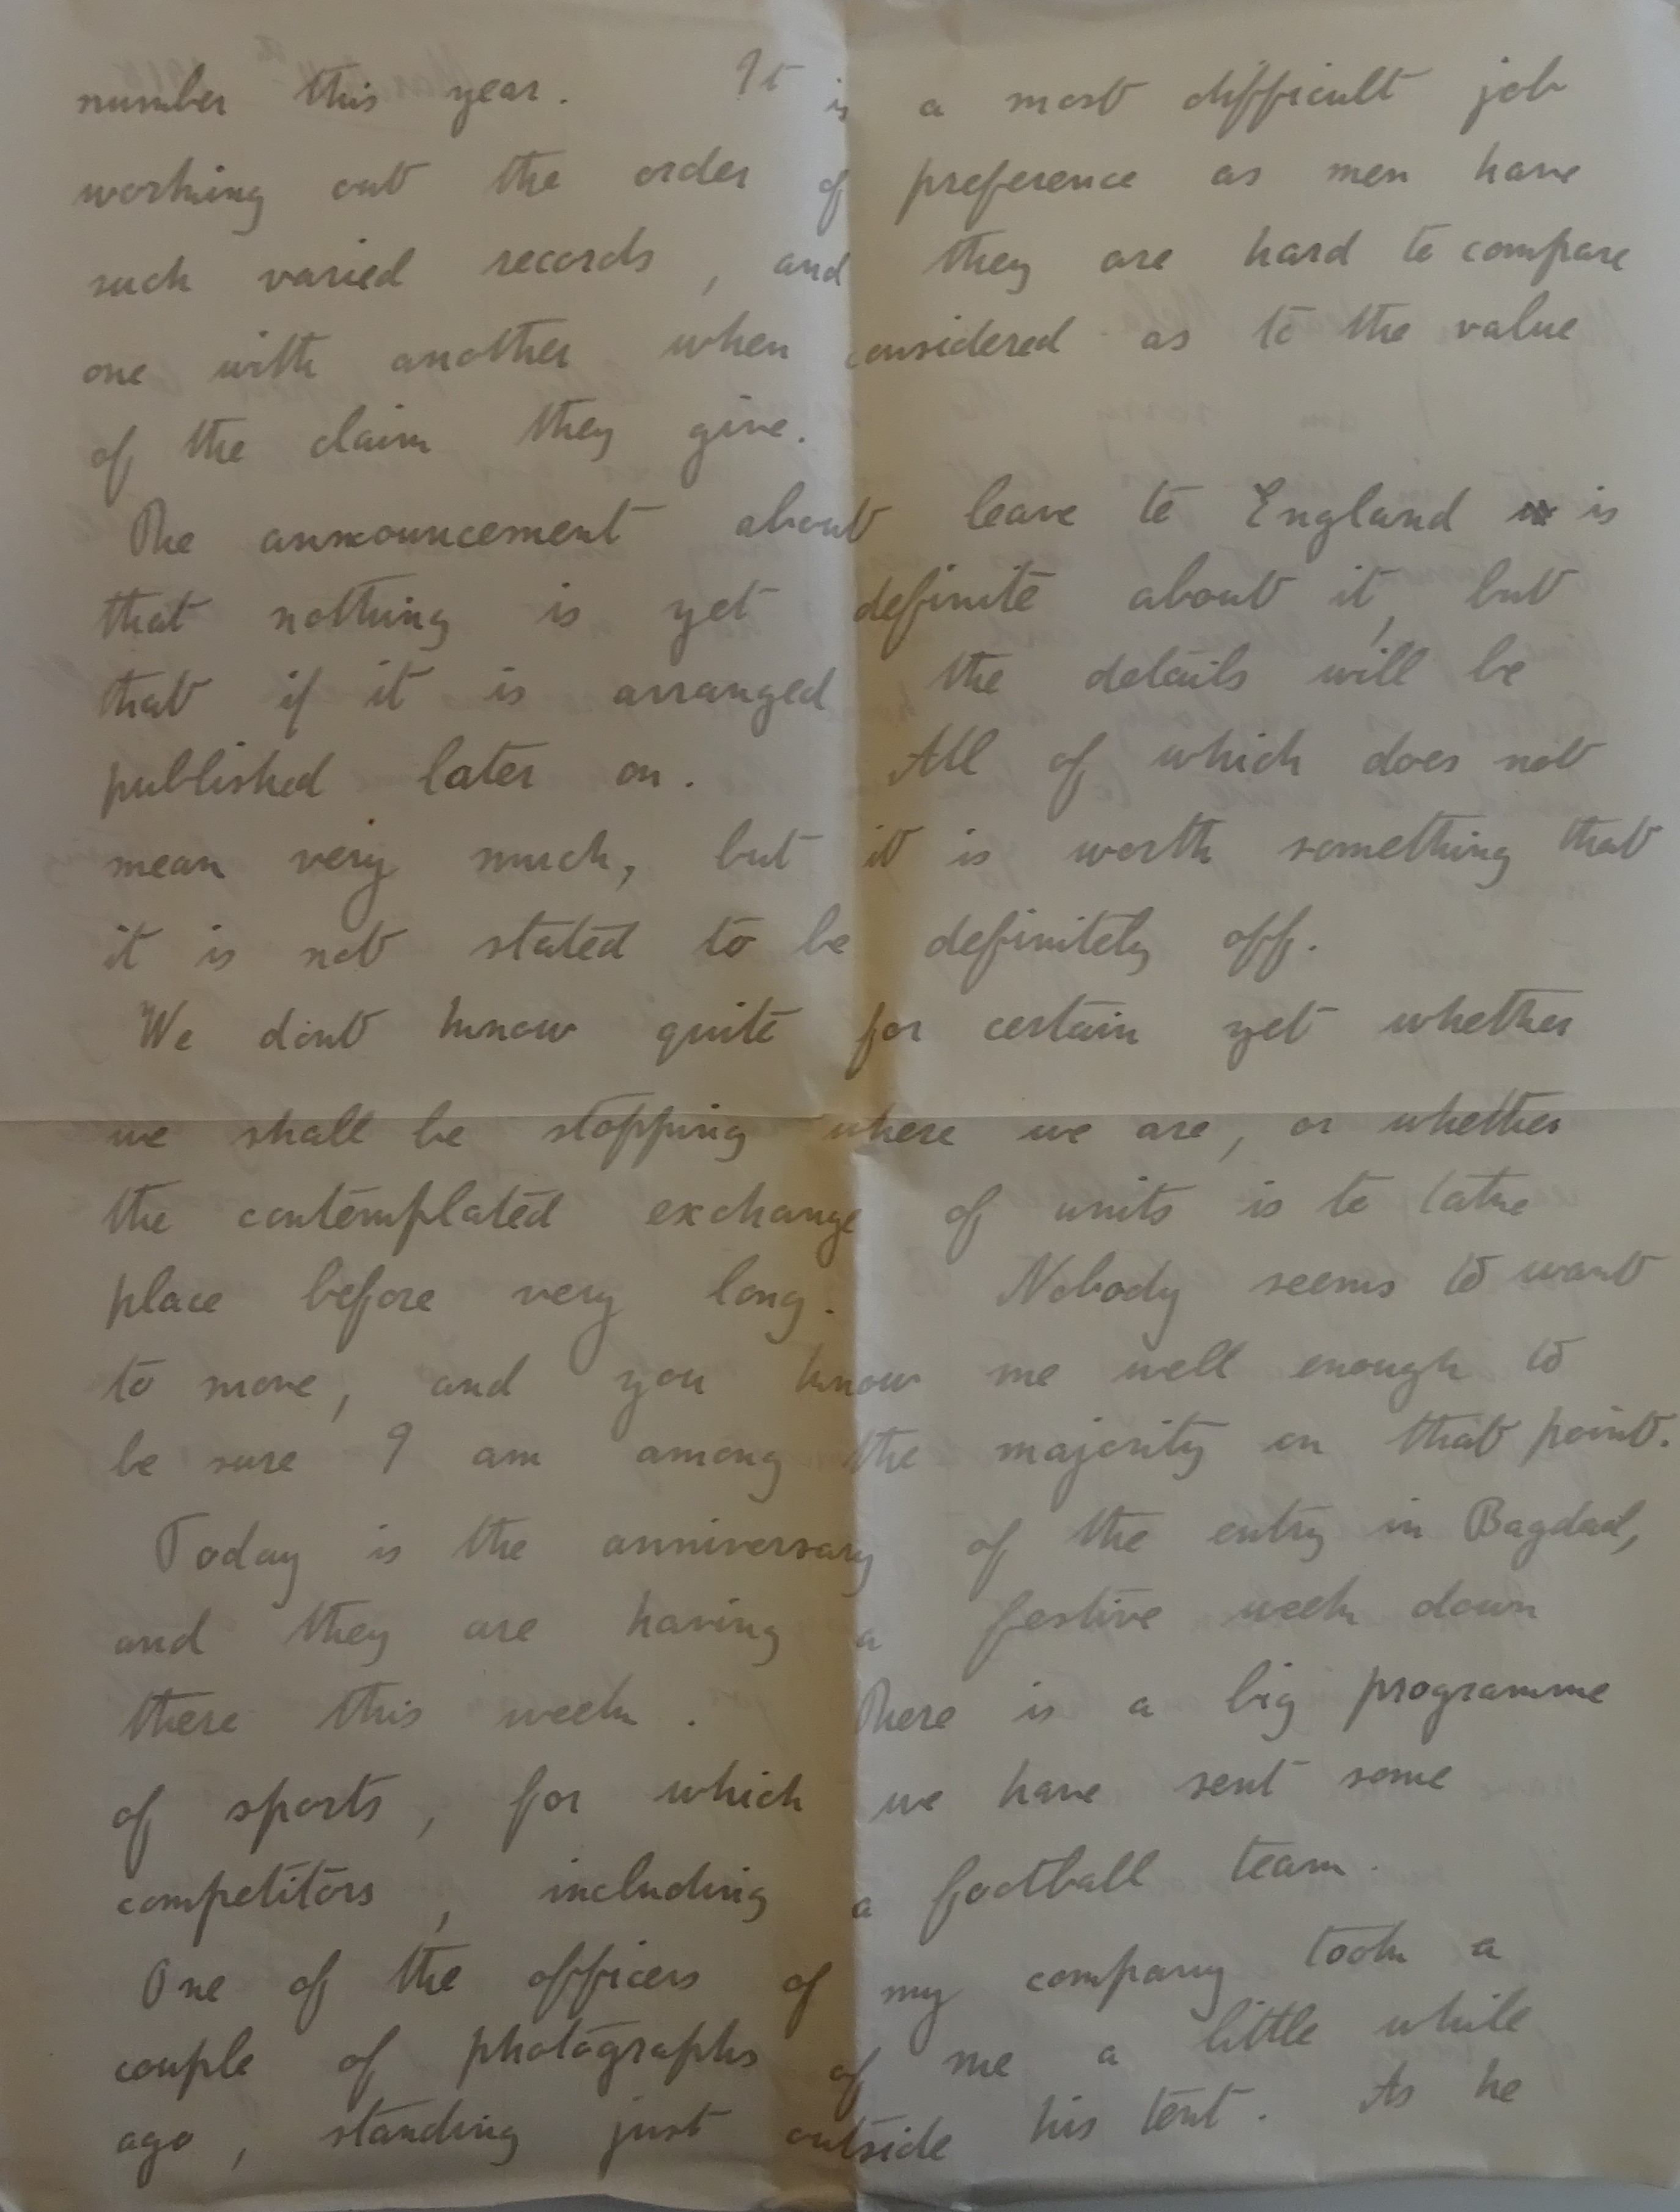 number this year. It is a most difficult job
working out the order of preference as men have
such varied records, and they are hard to compare
one with another when considered as to the value
of the claim they give.
The announcement about leave to England is
that nothing is yet definite about it, but
that if it is arranged the details will be
published later on. All of which does not
mean very much, but it is worth something that
it is not stated to be definitely off.
We dont know quite for certain yet whether
we shall be stopping where we are, or whether
the contemplated exchange of units is to take
place before very long. Nobody seems to want
to move, and you know me well enough to
be sure I am among the majority on that point.
Today is the anniversary of the entry in Bagdad,
and they are having a festive week down
there this week. There is a big programme
of sports, for which we have sent some
competitors, including a football team.
One of the officers of my company took a
couple of photographs of me a little while
ago, standing just outside his tent. As he